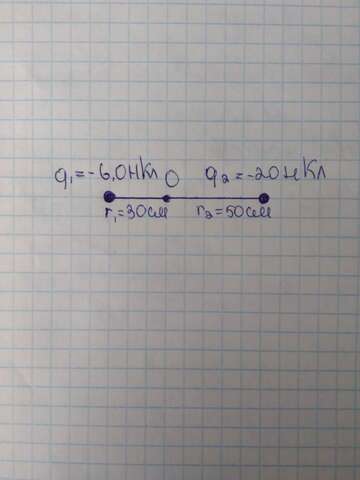 q₁=-6,0нКл O q₂=-20нКл
r₁=30см r₂=50см